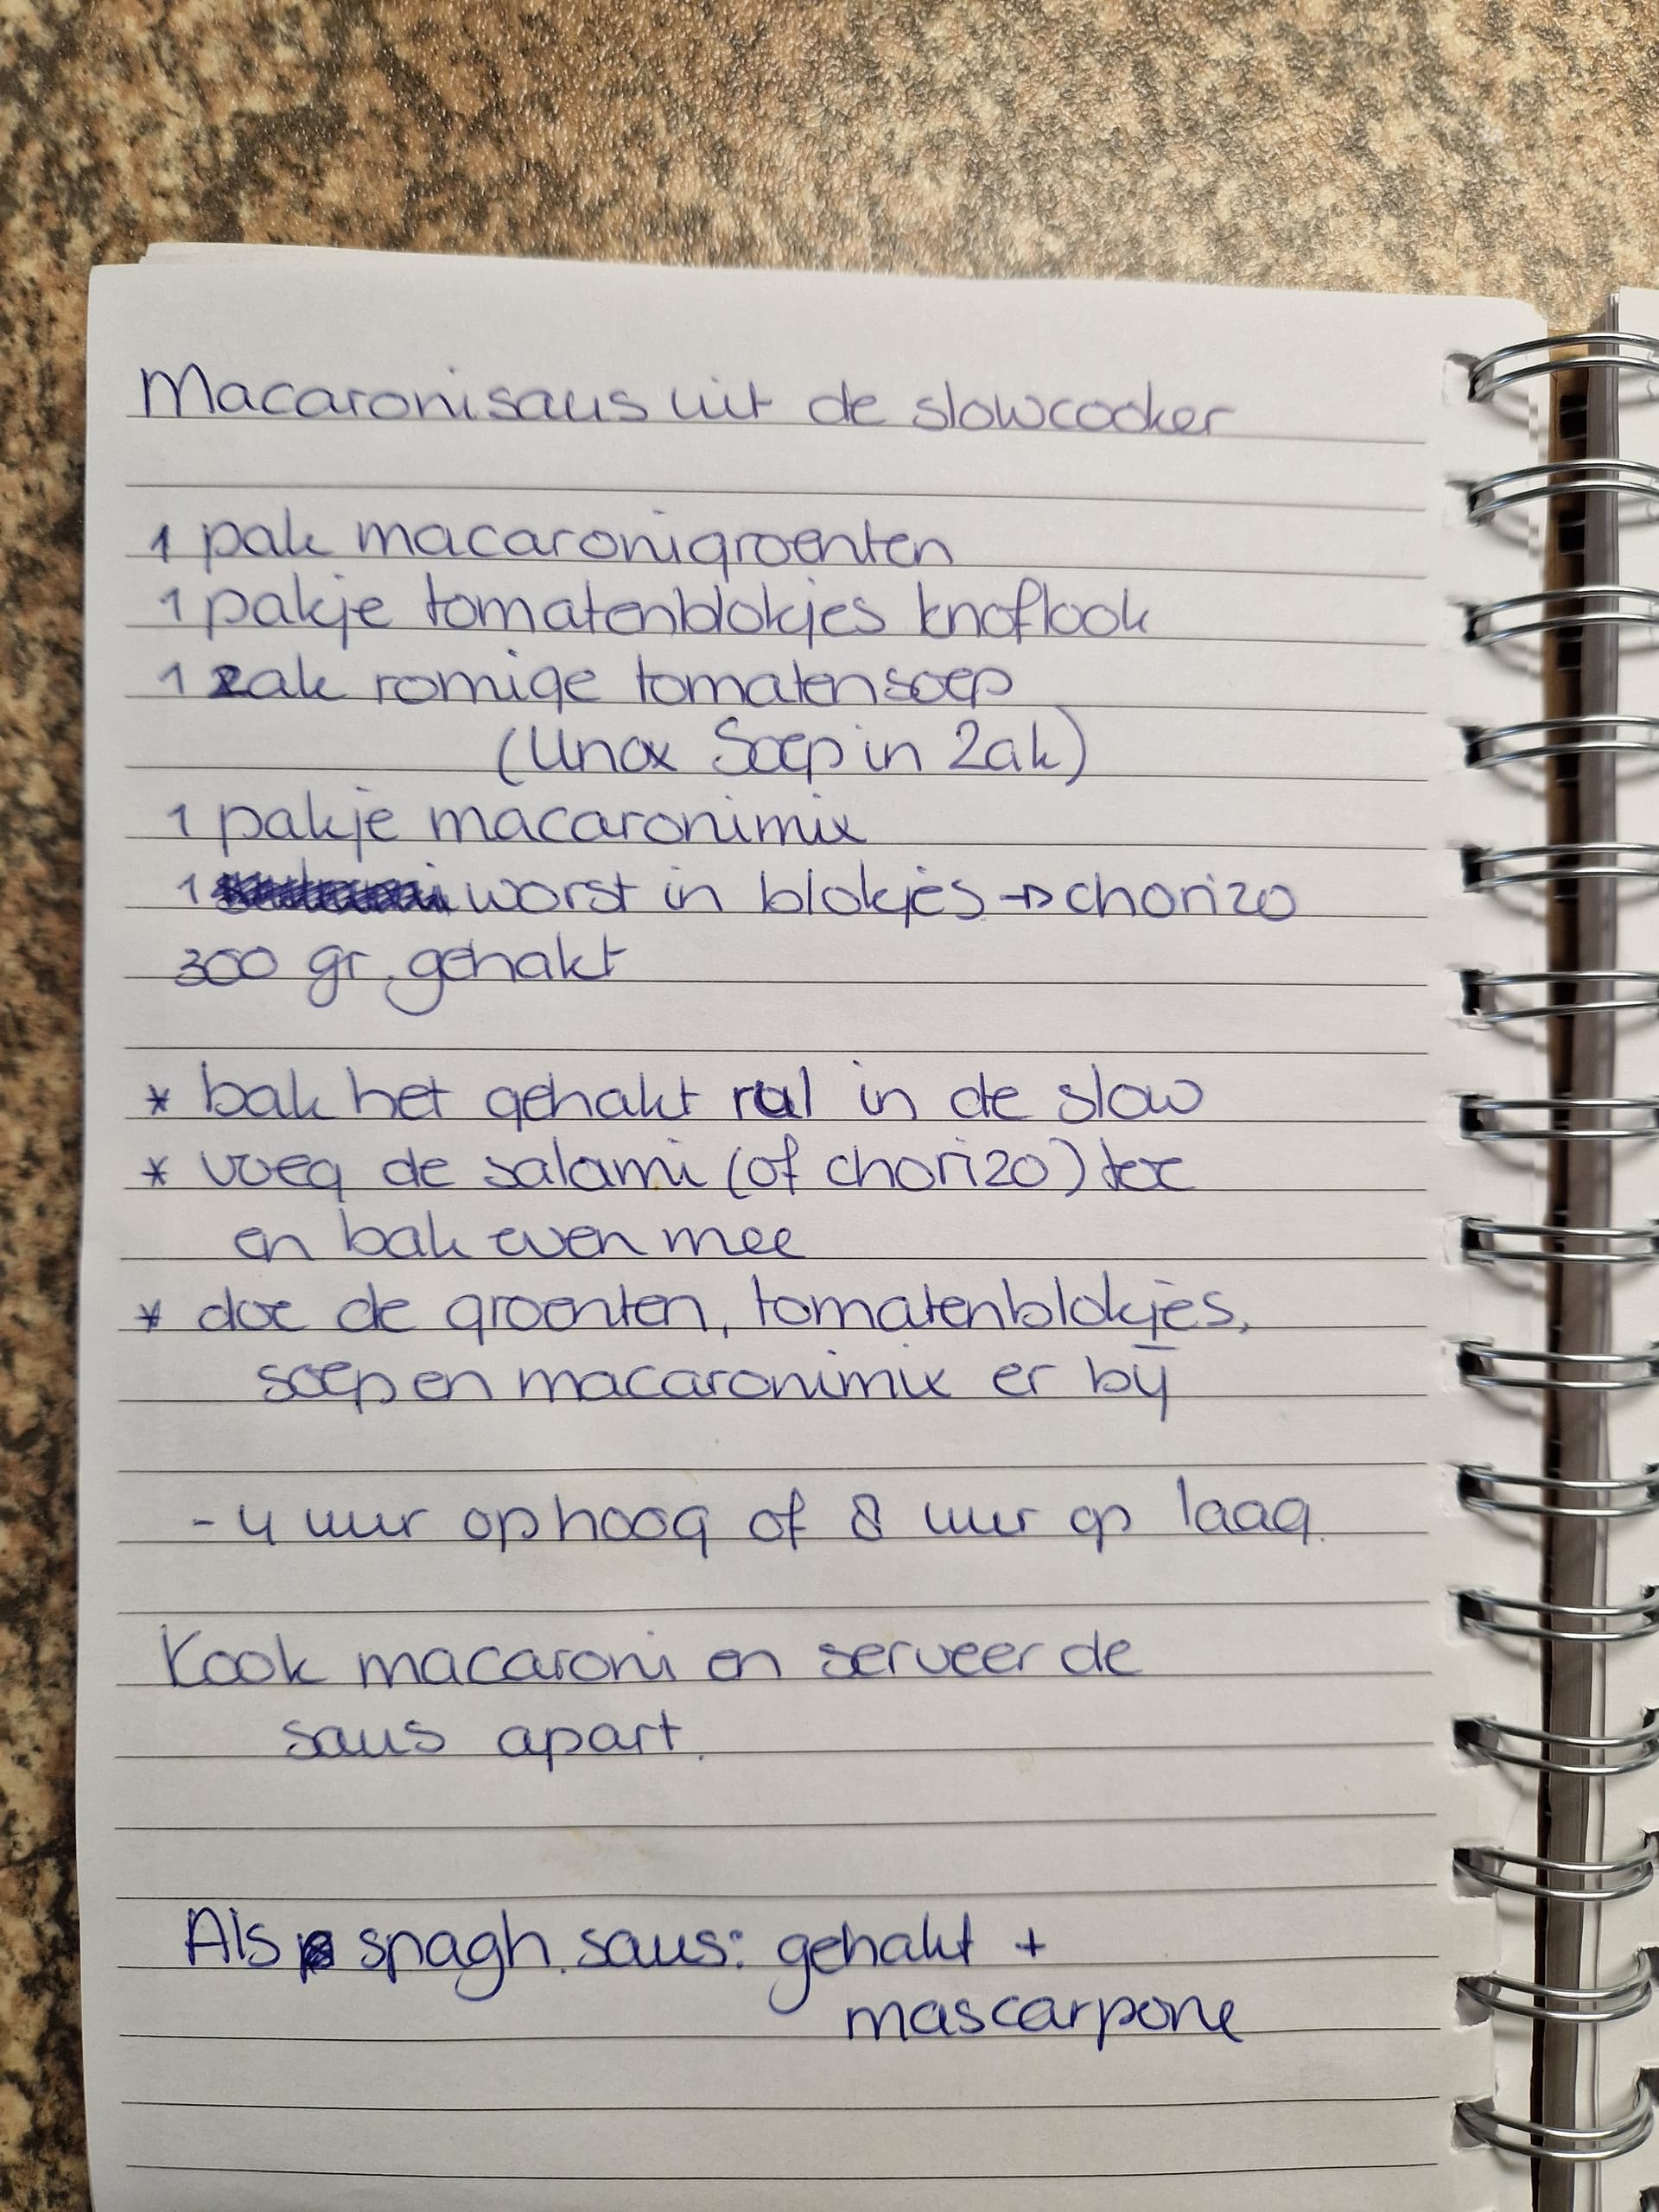 Macaronisaus uit de slowcooker
1 pak macaronigroenten
1 pakje tomatenblokjes knoflook
1 zak romige tomatensoep
(Unox Soep in Zak)
1 pakje macaronimix
1 worst in blokjes → chorizo
300 gr. gehakt
* bak het gehakt rul in de slow
* voeg de salami (of chorizo) toe
en bak even mee
* doe de groenten, tomatenblokjes,
soep en macaronimix er bij
- 4 uur op hoog of 8 uur op laag.
Kook macaroni en serveer de
saus apart.
Als spagh. saus: gehakt +
mascarpone